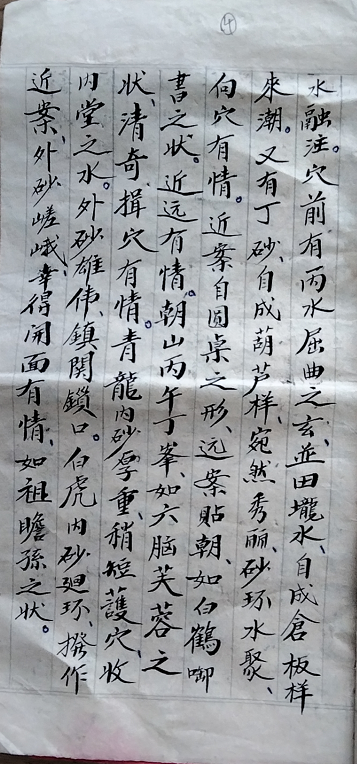 ④
水融注。穴前有丙水屈曲之玄、並田壠水、自成倉板样
來潮。又有丁砂、自成葫芦样、宛然秀丽、砂环水聚、
向穴有情。近案自圆桌之形、远案貼朝、如白鶴啣
書之状。近远有情。朝山丙午丁峯、如六脑芙蓉之
状、清奇、揖穴有情。青龍内砂厚重、稍短護穴、收
内堂之水。外砂雄伟、鎮関鎖口。白虎内砂廻环、撥作
近案、外砂嵯峨、幸得開面有情、如祖瞻孫之状。